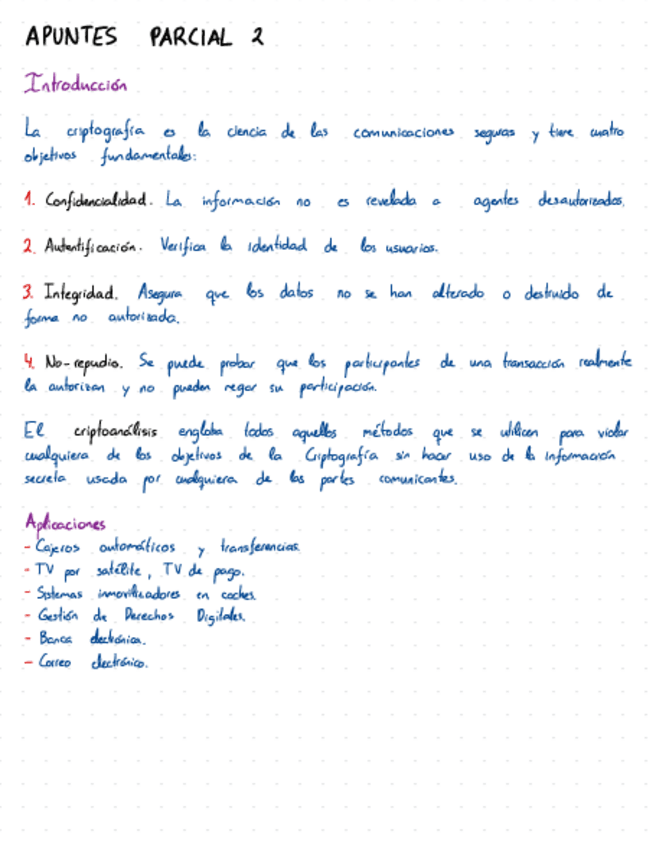 APUNTES PARCIAL 2
Introducción
La criptografía es la ciencia de las comunicaciones seguras y tiene cuatro
objetivos fundamentales:
1. Confidencialidad. La información no es revelada a agentes desautorizados.
2. Autentificación. Verifica la identidad de los usuarios.
3. Integridad. Asegura que los datos no se han alterado o destruido de
forma no autorizada.
4. No-repudio. Se puede probar que los participantes de una transacción realmente
la autorizan y no pueden negar su participación.
El criptoanálisis engloba todos aquellos métodos que se utilicen para violar
cualquiera de los objetivos de la Criptografía sin hacer uso de la información
secreta usada por cualquiera de las partes comunicantes.
Aplicaciones
- Cajeros automáticos y transferencias.
- TV por satélite, TV de pago.
- Sistemas inmovilizadores en coches.
- Gestión de Derechos Digitales.
- Banca electrónica.
- Correo electrónico.